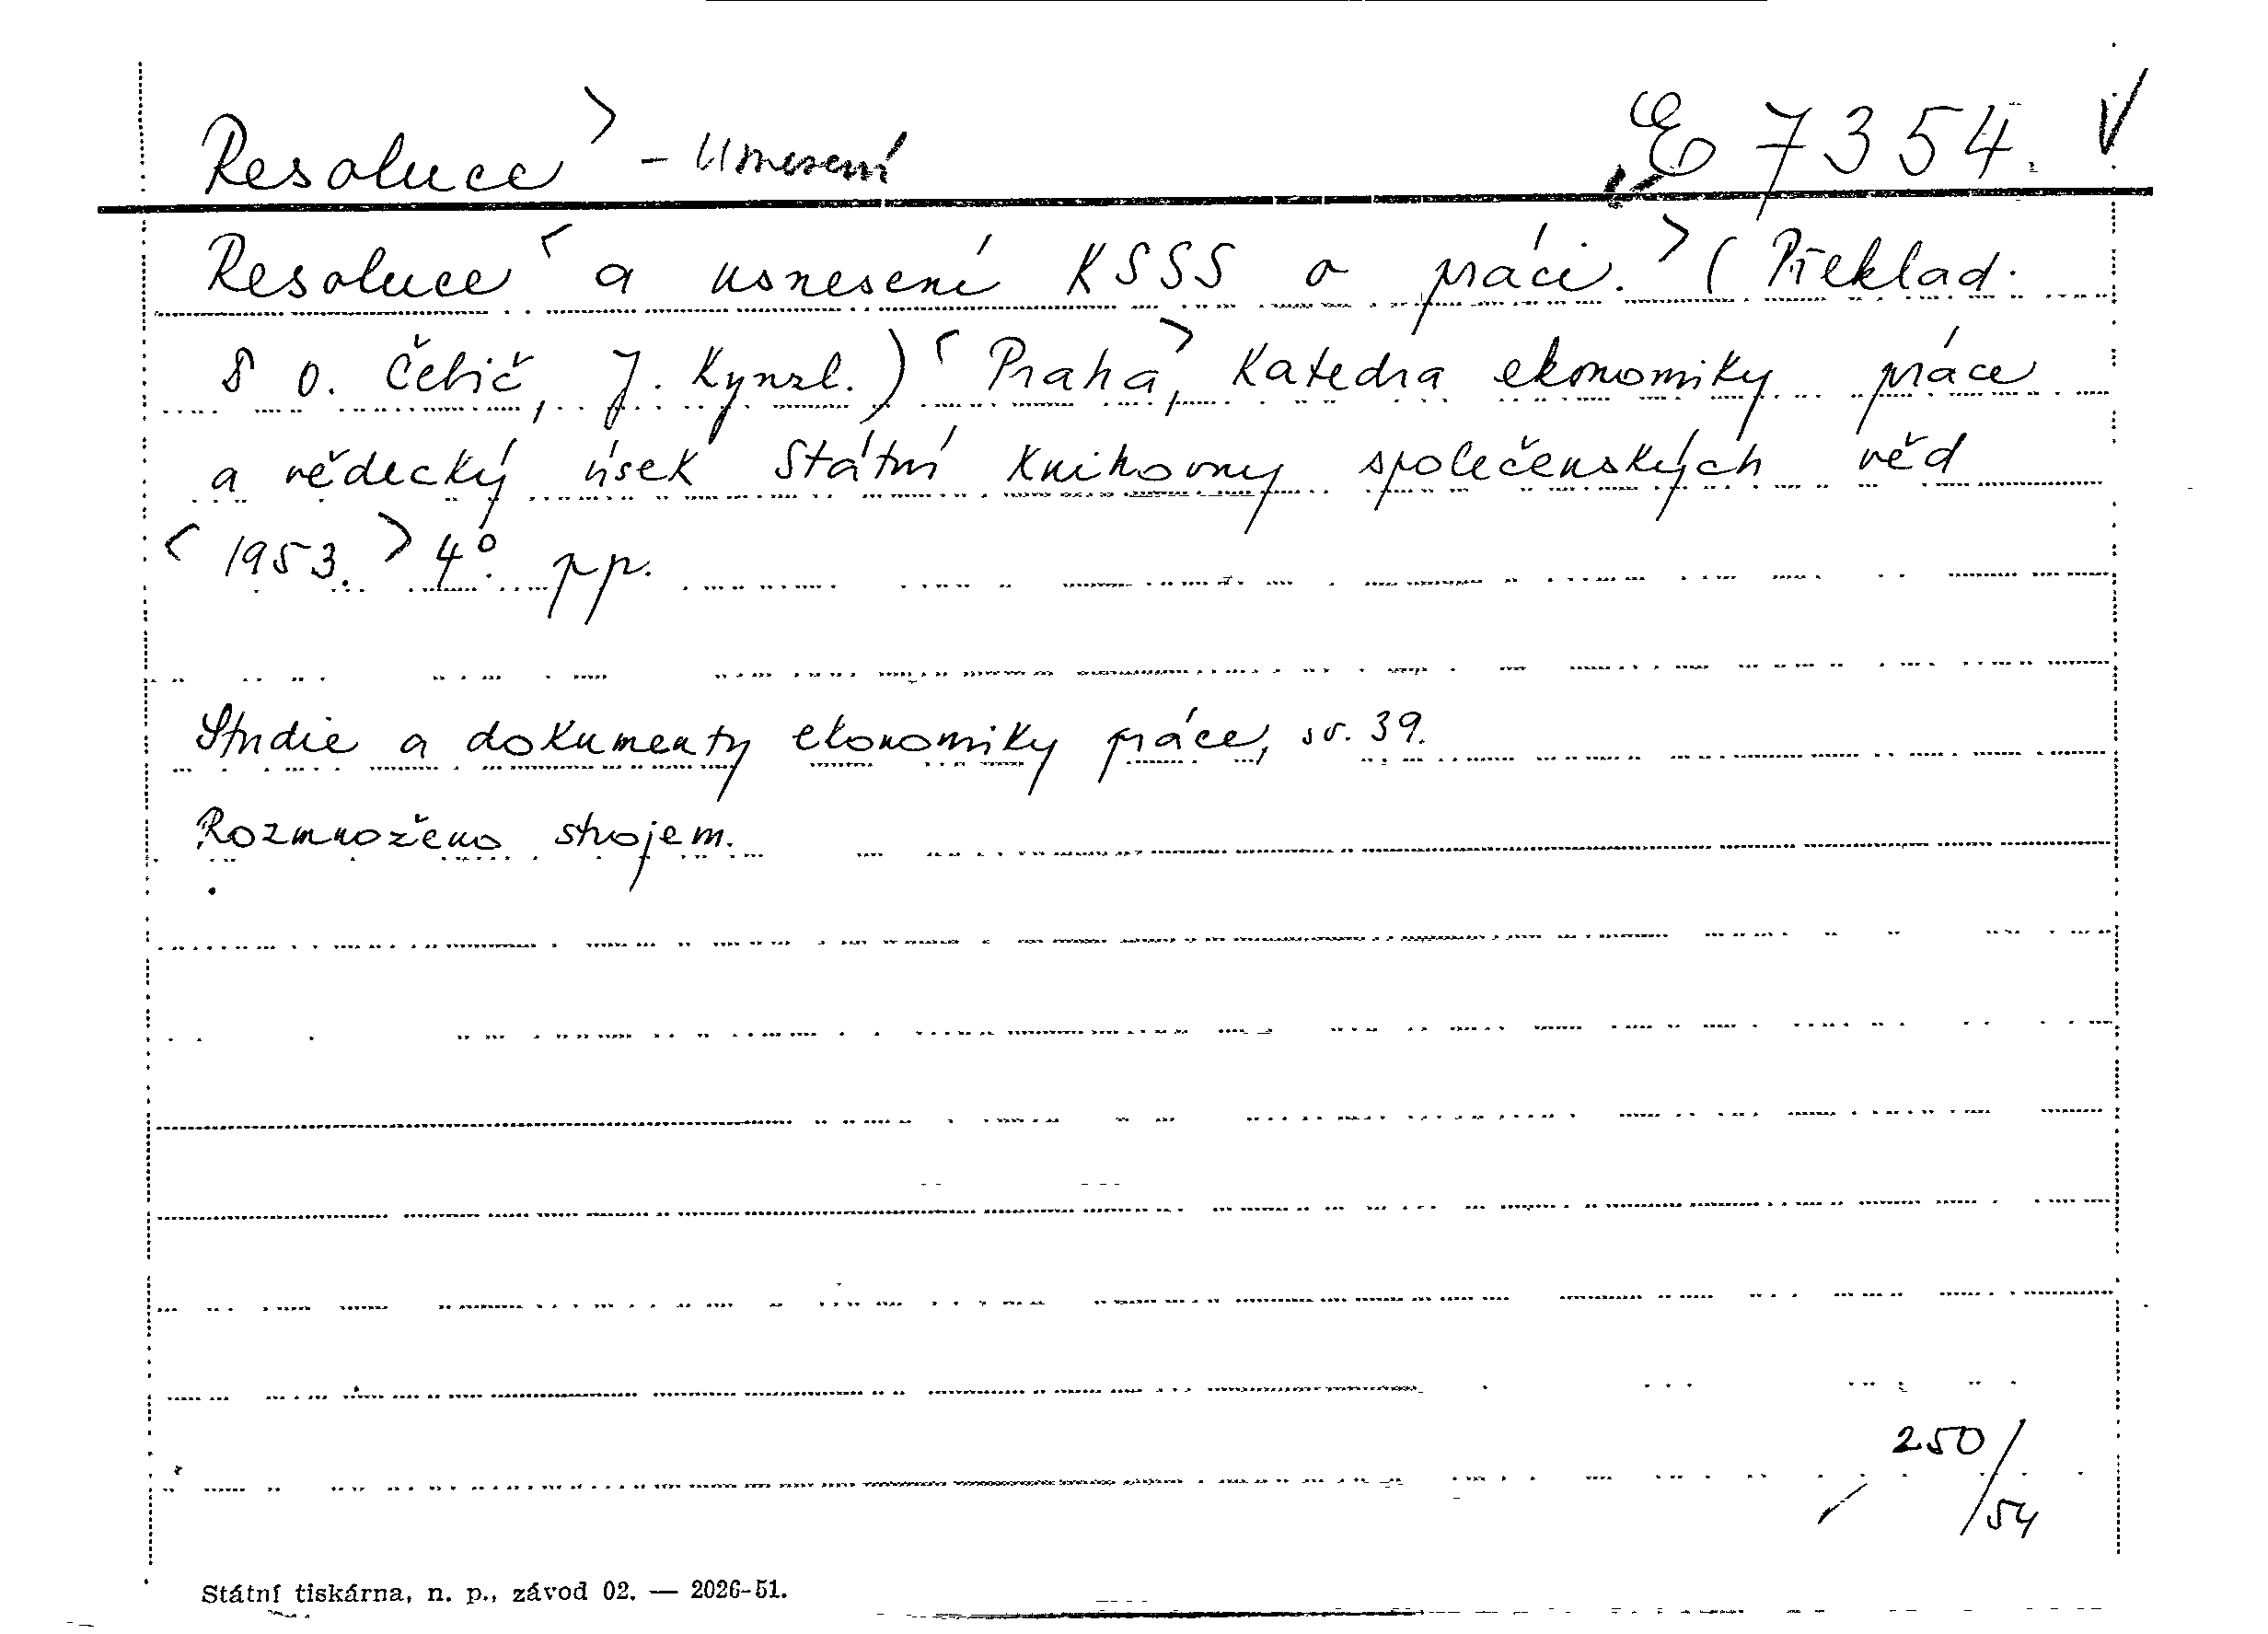 Resoluce > - Usnesení E 7354. V
Resoluce < a usnesení KSSS o práci. > (Překlad.
O. Čebič, J. Kynzl.) < Praha, > Katedra ekonomiky práce
a vědecký úsek Státní knihovny společenských věd
< 1953. > 4°. pp.
Studie a dokumenty ekonomiky práce, sv. 39.
Rozmnoženo strojem.
250/54
Státní tiskárna, n. p., závod 02. — 2026-51.